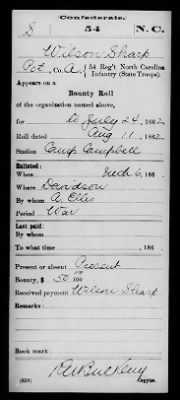 Confederate.
S 54 N.C.
Wilson Sharp
Pvt, Co. A, 54 Reg't North Carolina
Infantry (State Troops).
Appears on a
Bounty Roll
of the organization named above,
for to July 24, 1862
Roll dated Aug 11, 1862
Station Camp Campbell
Enlisted:
When 6, 186
Where Davidson
By whom A. Ellis
Period War
Last paid:
By whom
To what time , 186
Present or absent Present
Bounty, $ 50 100
Received payment Wilson Sharp
Remarks:
Book mark:
Copyist.